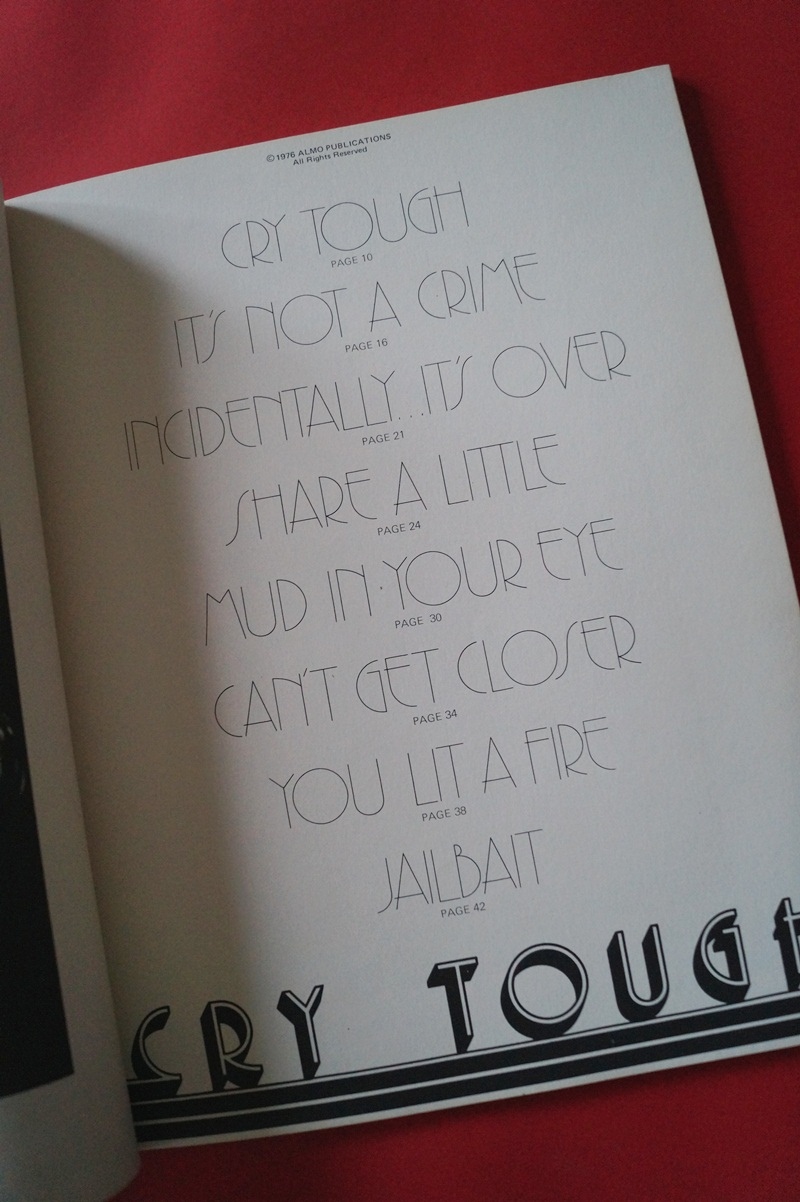 © 1976 ALMO PUBLICATIONS
All Rights Reserved
CRY TOUGH
PAGE 10
IT'S NOT A CRIME
PAGE 16
INCIDENTALLY...IT'S OVER
PAGE 21
SHARE A LITTLE
PAGE 24
MUD IN YOUR EYE
PAGE 30
CAN'T GET CLOSER
PAGE 34
YOU LIT A FIRE
PAGE 38
JAILBAIT
PAGE 42
CRY TOUGH